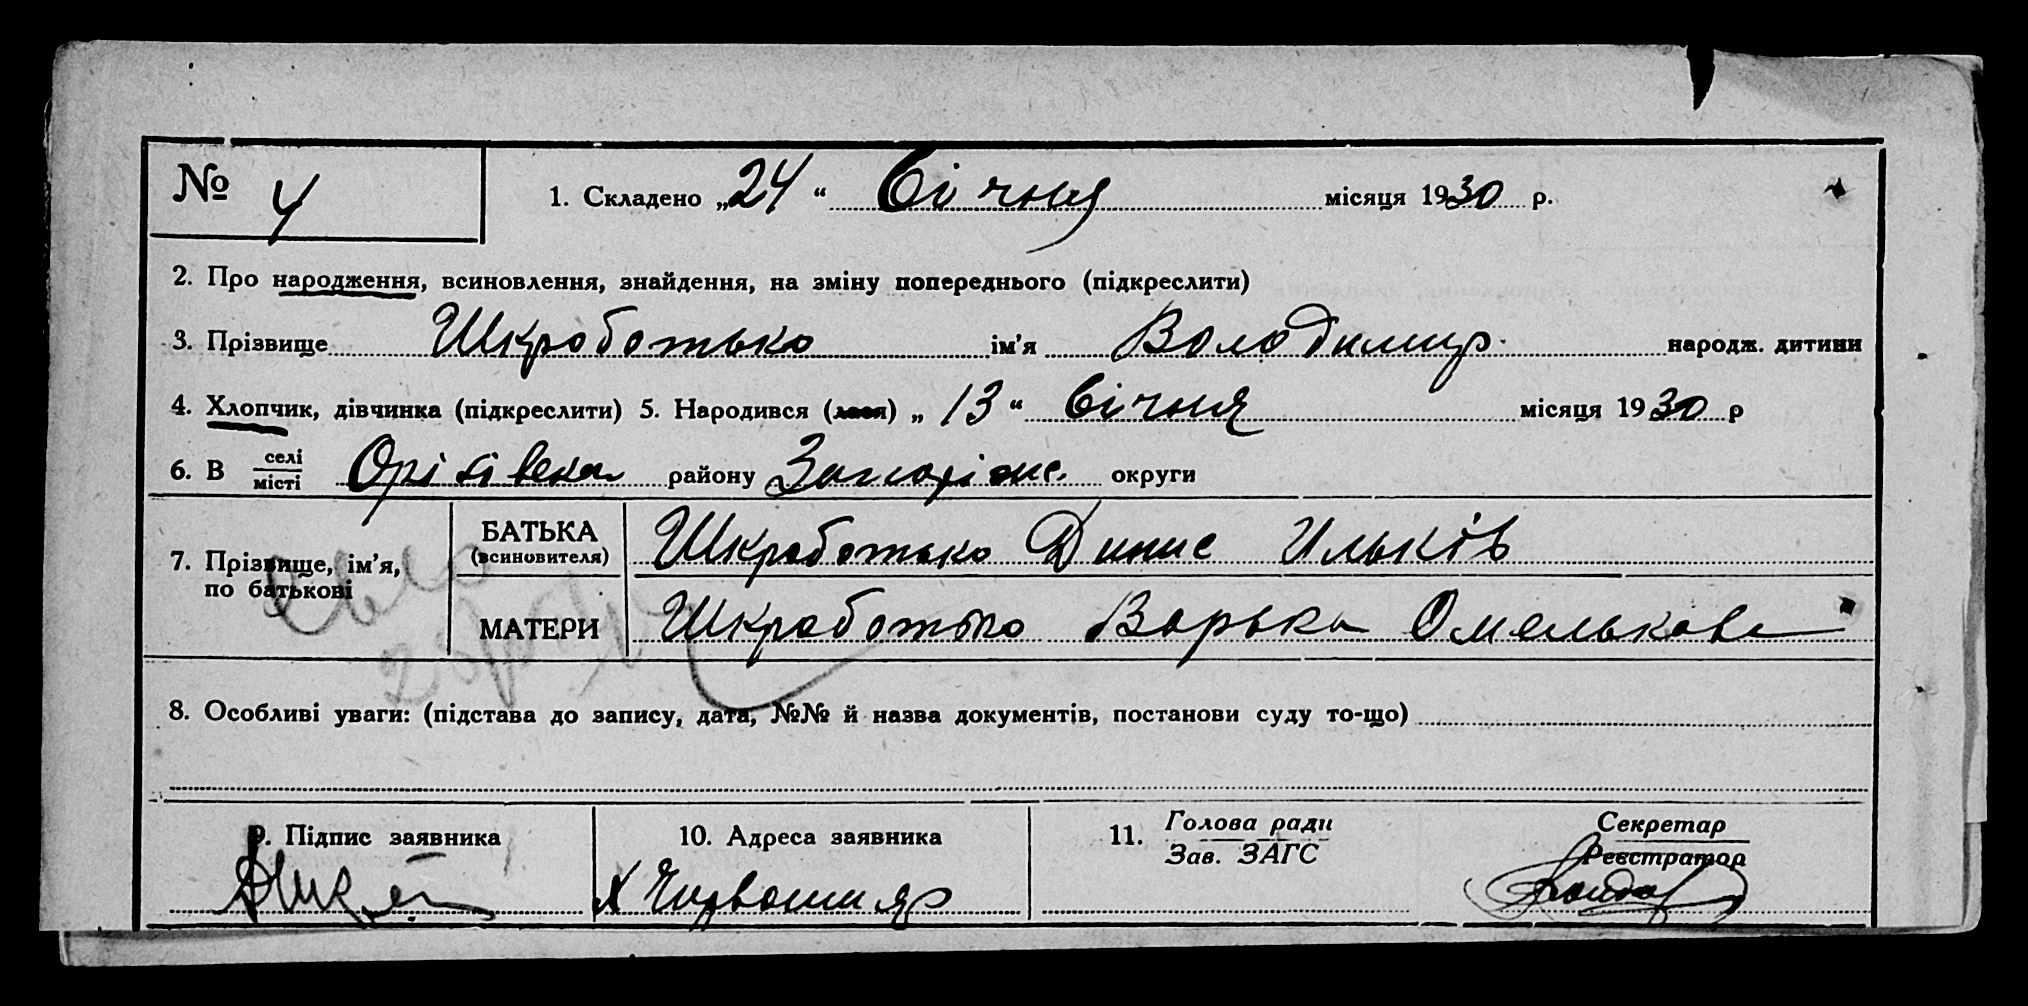 № 4
1. Складено „24“ Січня місяця 1930 р.
2. Про народження, всиновлення, знайдення, на зміну попереднього (підкреслити)
3. Прізвище Шкроботько ім’я Володимир народж. дитини
4. Хлопчик, дівчинка (підкреслити) 5. Народився (лася) „13“ Січня місяця 1930 р
6. В селі
місті району Запоріж. округи
7. Прізвище, ім’я,
по батькові
БАТЬКА
(всиновителя)
Шкроботько Динис Ильків
МАТЕРИ Шкроботько Варька Омелькова
8. Особливі уваги: (підстава до запису, дата, №№ й назва документів, постанови суду то-що)
9. Підпис заявника
10. Адреса заявника
Х
11. Голова ради
Зав. ЗАГС
Секретар
Реєстратор